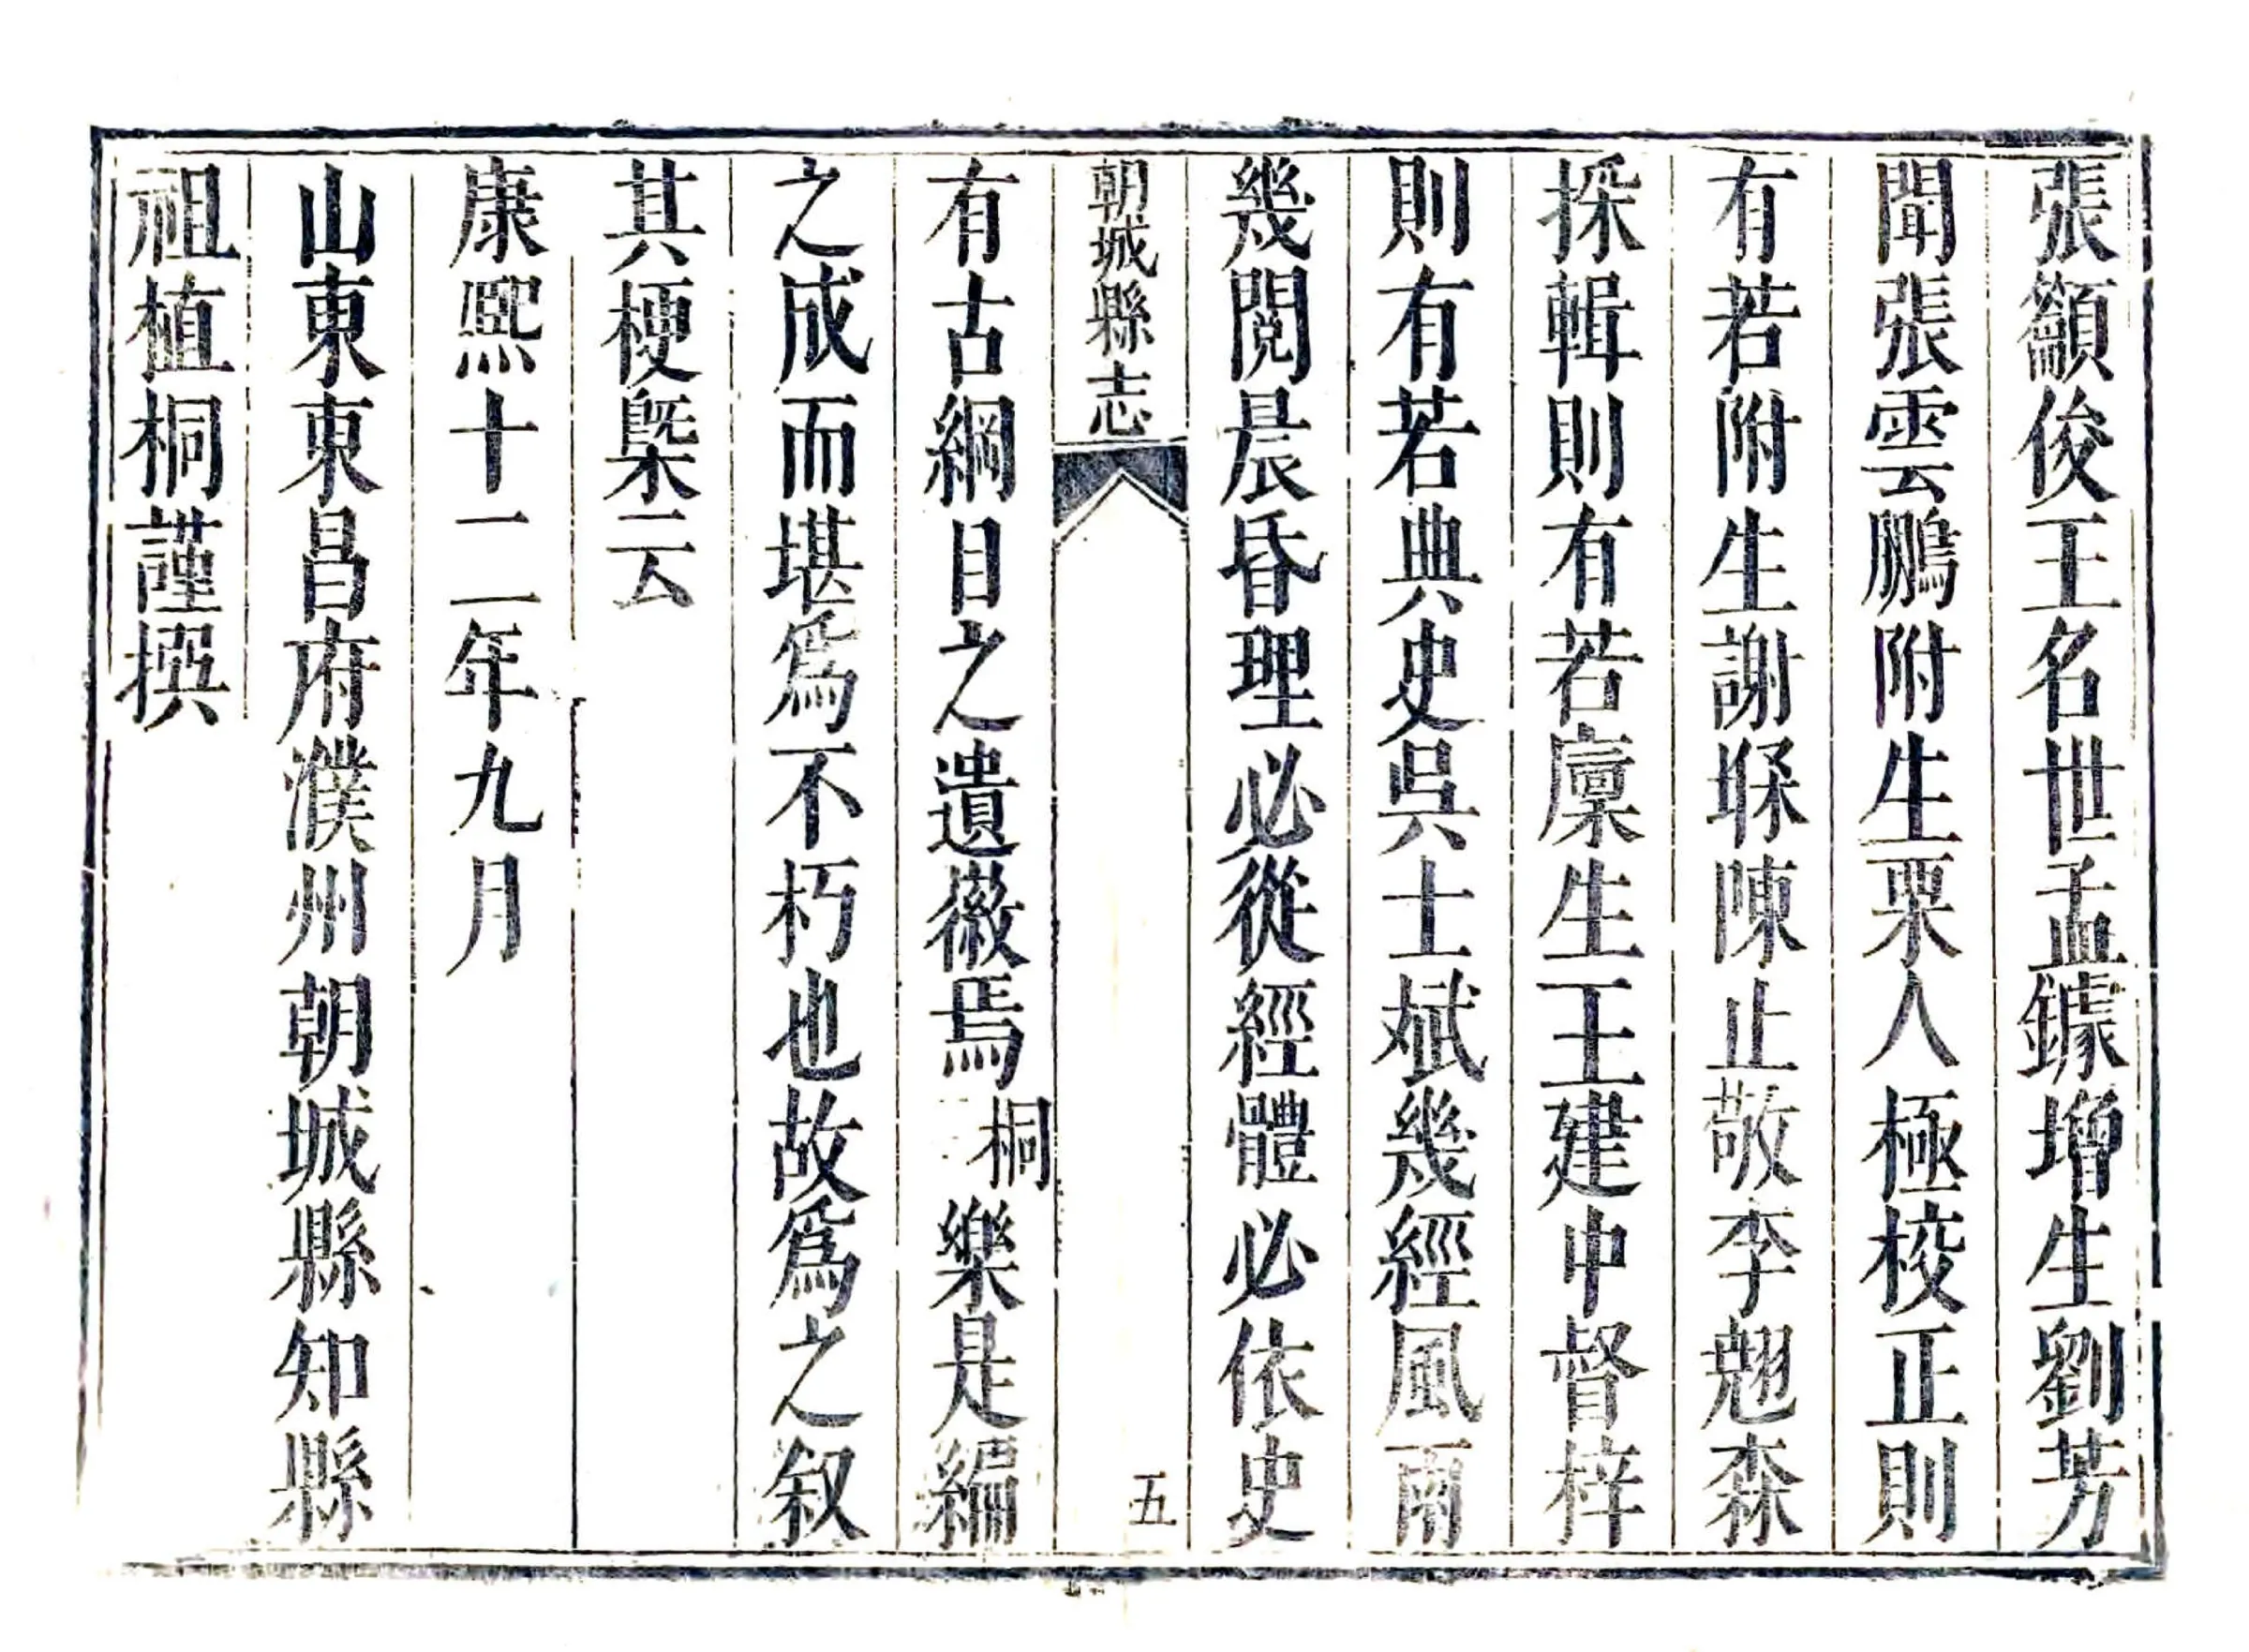 張籲俊王名世孟鐻增生劉芳
聞張雲鵬附生栗人極校正則
有若附生謝堔陳止敬李翹森
採輯則有若廩生王建中督梓
則有若典史吳士斌幾經風雨
幾閱晨昏理必從經體必依史
朝城縣志
五
有古綱目之遺徽焉桐樂是編
之成而堪爲不朽也故爲之叙
其梗槩云
康熙十二年九月
山東東昌府濮州朝城縣知縣
祖植桐謹撰